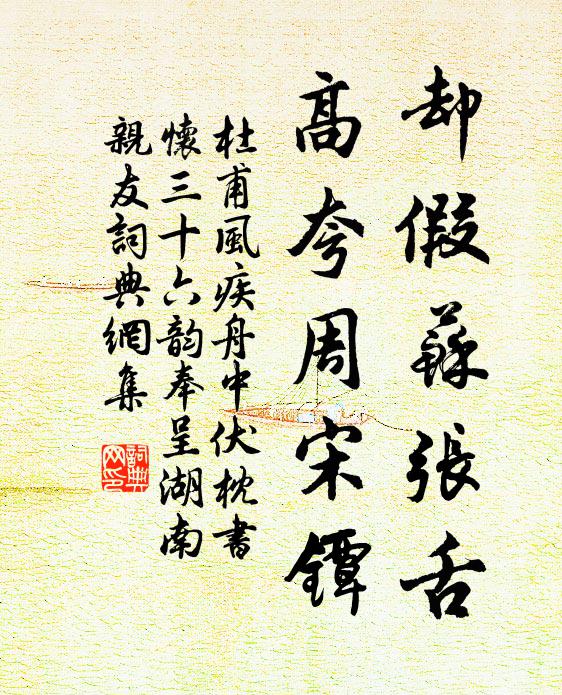 却假蘇張舌
高夸周宋鐔
杜甫風疾舟中伏枕書
懷三十六韵奉呈湖南
親友詞典網集
詞典
网印